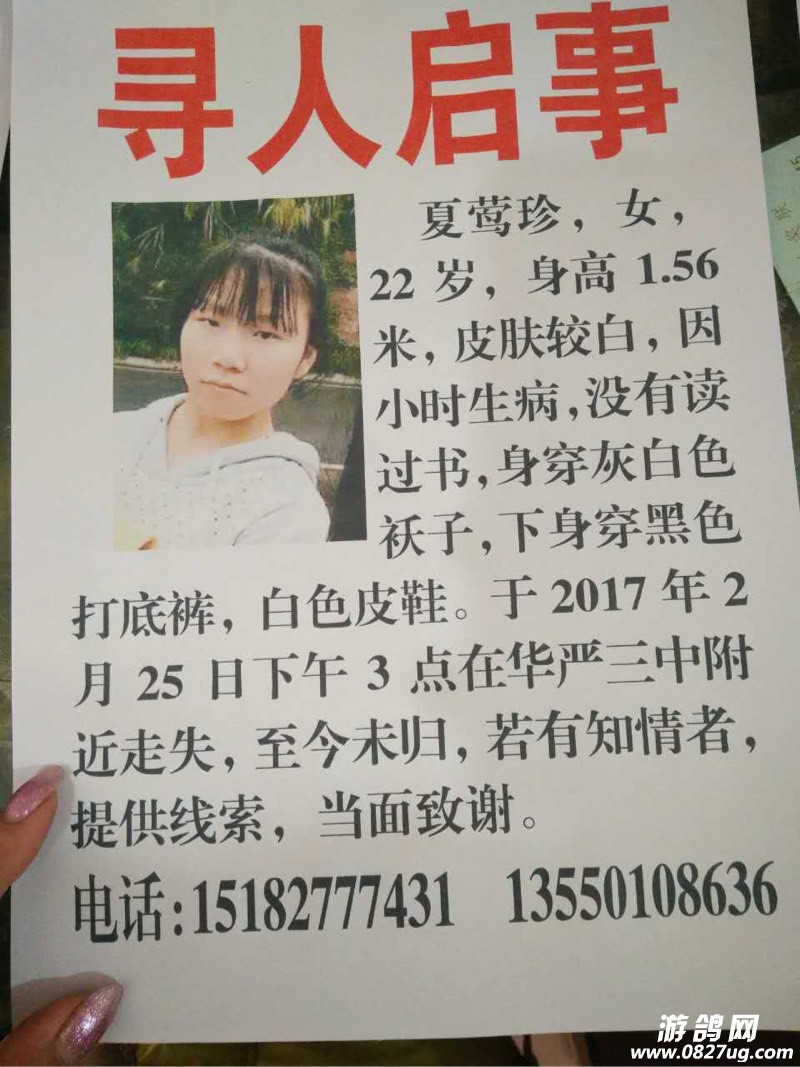 寻人启事
夏莺珍，女，
22 岁，身高 1.56
米，皮肤较白，因
小时生病，没有读
过书，身穿灰白色
袄子，下身穿黑色
打底裤，白色皮鞋。于 2017 年 2
月 25 日下午 3 点在华严三中附
近走失，至今未归，若有知情者，
提供线索，当面致谢。
电话：15182777431 13550108636
游鸽网
www.0827ug.com